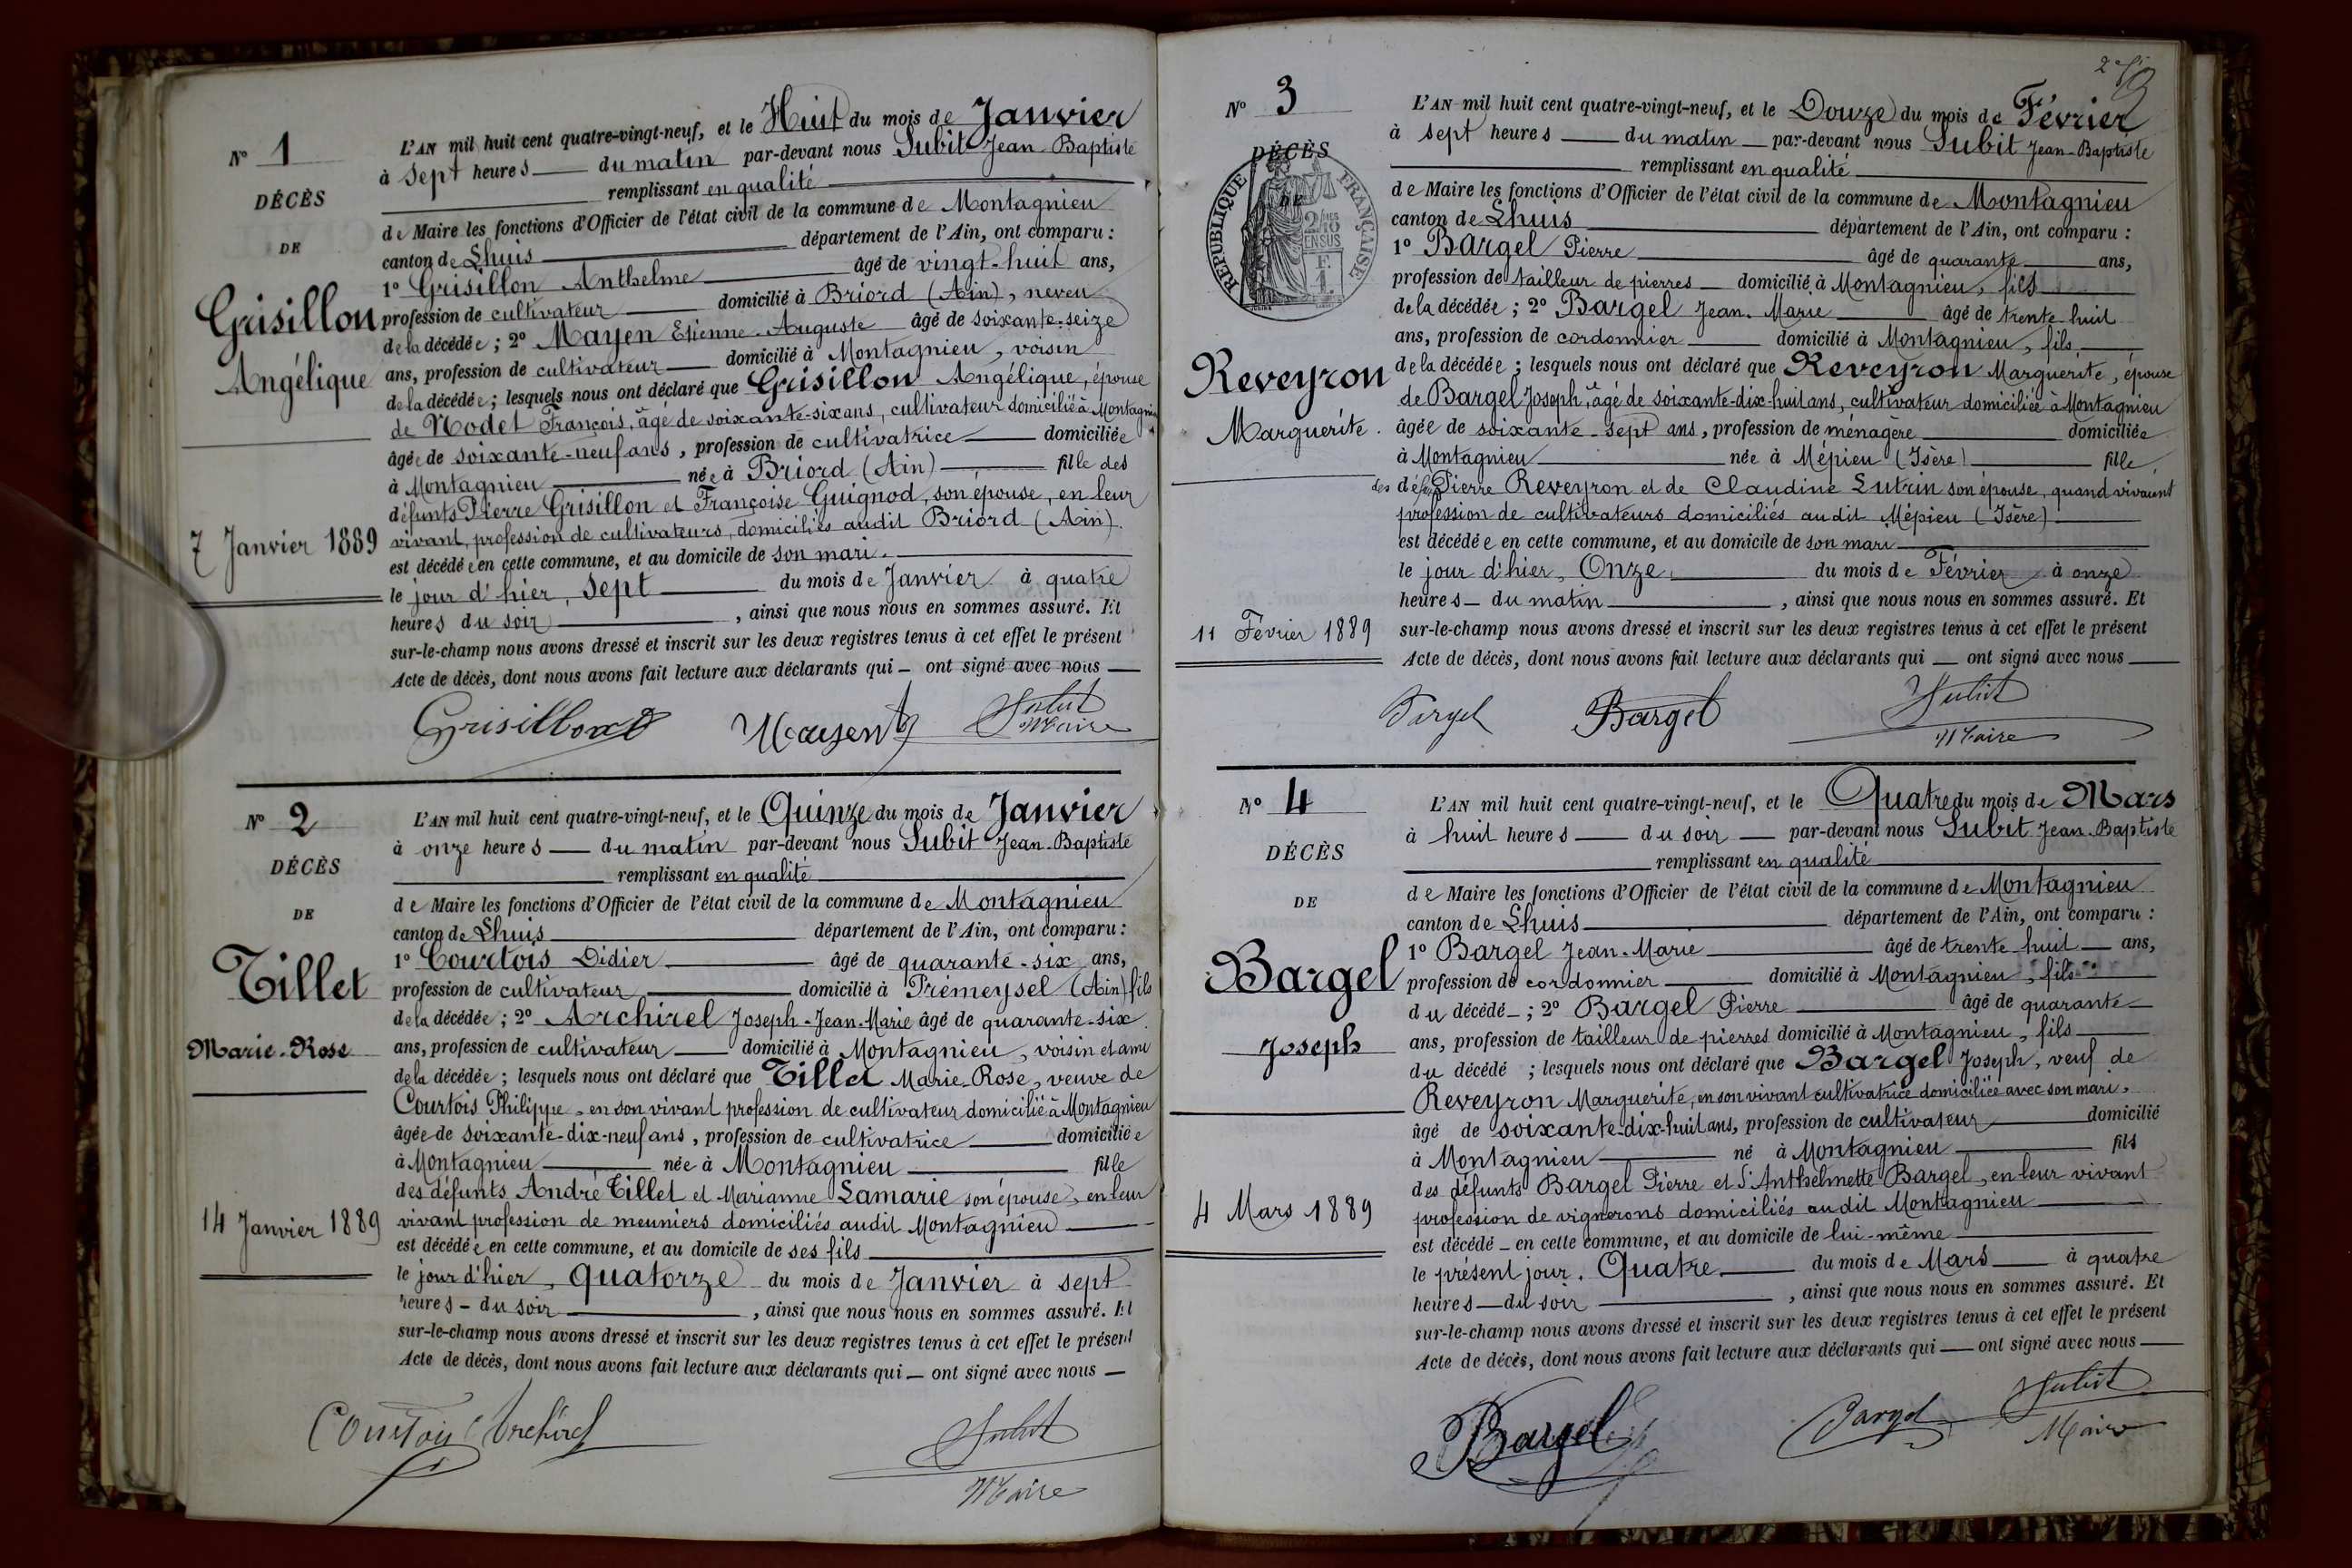 N° 1
DÉCÈS
DE
Grisillon
Angélique
7 Janvier 1889
L'AN mil huit cent quatre-vingt-neuf, et le Huit du mois de Janvier
à sept heures du matin par-devant nous Subit Jean-Baptiste
remplissant en qualité
de Maire les fonctions d'Officier de l'état civil de la commune de Montagnieu
canton de Lhuis département de l'Ain, ont comparu :
1° Grisillon Anthelme âgé de vingt-huit ans,
profession de cultivateur domicilié à Briord (Ain), neveu
de la décédée ; 2° Mayen Etienne-Auguste âgé de soixante-seize
ans, profession de cultivateur domicilié à Montagnieu, voisin
de la décédée ; lesquels nous ont déclaré que Grisillon Angélique, épouse
de Nodet François, âgé de soixante-six ans, cultivateur domicilié à Montagnieu
âgée de soixante-neuf ans, profession de cultivatrice domiciliée
à Montagnieu née à Briord (Ain) fille des
défunts Pierre Grisillon et Françoise Guignod, son épouse, en leur
vivant, profession de cultivateurs, domiciliés audit Briord (Ain).
est décédée en cette commune, et au domicile de son mari.
le jour d'hier, sept du mois de Janvier à quatre
heures du soir, ainsi que nous nous en sommes assuré. Et
sur-le-champ nous avons dressé et inscrit sur les deux registres tenus à cet effet le présent
Acte de décès, dont nous avons fait lecture aux déclarants qui — ont signé avec nous —
Grisillon Mayen Subit
Maire
N° 2
DÉCÈS
DE
Tillet
Marie-Rose
14 Janvier 1889
L'AN mil huit cent quatre-vingt-neuf, et le Quinze du mois de Janvier
à onze heures du matin par-devant nous Subit Jean-Baptiste
remplissant en qualité
de Maire les fonctions d'Officier de l'état civil de la commune de Montagnieu
canton de Lhuis département de l'Ain, ont comparu :
1° Courtois Didier âgé de quarante-six ans,
profession de cultivateur domicilié à Prémeysel (Ain) fils
de la décédée ; 2° Archirel Joseph-Jean-Marie âgé de quarante-six
ans, profession de cultivateur domicilié à Montagnieu, voisin et ami
de la décédée ; lesquels nous ont déclaré que Tillet Marie-Rose, veuve de
Courtois Philippe, en son vivant profession de cultivateur domicilié à Montagnieu
âgée de soixante-dix-neuf ans, profession de cultivatrice domiciliée
à Montagnieu née à Montagnieu fille
des défunts André Tillet et Marianne Lamarie son épouse, en leur
vivant profession de meuniers domiciliés audit Montagnieu
est décédée en cette commune, et au domicile de ses fils
le jour d'hier, quatorze du mois de Janvier à sept
heures - du soir, ainsi que nous nous en sommes assuré. Et
sur-le-champ nous avons dressé et inscrit sur les deux registres tenus à cet effet le présent
Acte de décès, dont nous avons fait lecture aux déclarants qui — ont signé avec nous —
Courtois Archirel Subit
Maire
N° 3
DÉCÈS
DE
RÉPUBLIQUE FRANÇAISE
Reveyron
Marguerite.
11 Février 1889
L'AN mil huit cent quatre-vingt-neuf, et le Douze du mois de Février
à sept heures du matin par-devant nous Subit Jean-Baptiste
remplissant en qualité
de Maire les fonctions d'Officier de l'état civil de la commune de Montagnieu
canton de Lhuis département de l'Ain, ont comparu :
1° Bargel Pierre âgé de quarante ans,
profession de tailleur de pierres domicilié à Montagnieu, fils
de la décédée ; 2° Bargel Jean-Marie âgé de trente-huit
ans, profession de cordonnier domicilié à Montagnieu, fils
de la décédée ; lesquels nous ont déclaré que Reveyron Marguerite, épouse
de Bargel Joseph, âgé de soixante-dix-huit ans, cultivateur domiciliée à Montagnieu
âgée de soixante-sept ans, profession de ménagère domiciliée
à Montagnieu née à Mépieu (Isère) fille
des Pierre Reveyron et de Claudine Lutrin son épouse, quand vivaient
profession de cultivateurs domiciliés audit Mépieu (Isère)
est décédée en cette commune, et au domicile de son mari
le jour d'hier, Onze, du mois de Février à onze
heures - du matin, ainsi que nous nous en sommes assuré. Et
sur-le-champ nous avons dressé et inscrit sur les deux registres tenus à cet effet le présent
Acte de décès, dont nous avons fait lecture aux déclarants qui — ont signé avec nous —
Bargel Bargel Subit
Maire
N° 4
DÉCÈS
DE
Bargel
Joseph
4 Mars 1889
L'AN mil huit cent quatre-vingt-neuf, et le Quatre du mois de Mars
à huit heures du soir par-devant nous Subit Jean-Baptiste
remplissant en qualité
de Maire les fonctions d'Officier de l'état civil de la commune de Montagnieu
canton de Lhuis département de l'Ain, ont comparu :
1° Bargel Jean-Marie âgé de trente-huit ans,
profession de cordonnier domicilié à Montagnieu, fils
du décédé ; 2° Bargel Pierre âgé de quarante
ans, profession de tailleur de pierres domicilié à Montagnieu, fils
du décédé ; lesquels nous ont déclaré que Bargel Joseph, veuf de
Reveyron Marguerite, en son vivant cultivatrice domiciliée avec son mari,
âgé de soixante-dix-huit ans, profession de cultivateur domicilié
à Montagnieu né à Montagnieu fils
des défunts Bargel Pierre et d'Anthelmette Bargel, en leur vivant
profession de vignerons domiciliés audit Montagnieu
est décédé en cette commune, et au domicile de lui-même
le présent jour. Quatre du mois de Mars à quatre
heures du soir, ainsi que nous nous en sommes assuré. Et
sur-le-champ nous avons dressé et inscrit sur les deux registres tenus à cet effet le présent
Acte de décès, dont nous avons fait lecture aux déclarants qui — ont signé avec nous —
Bargel Bargel Subit
Maire